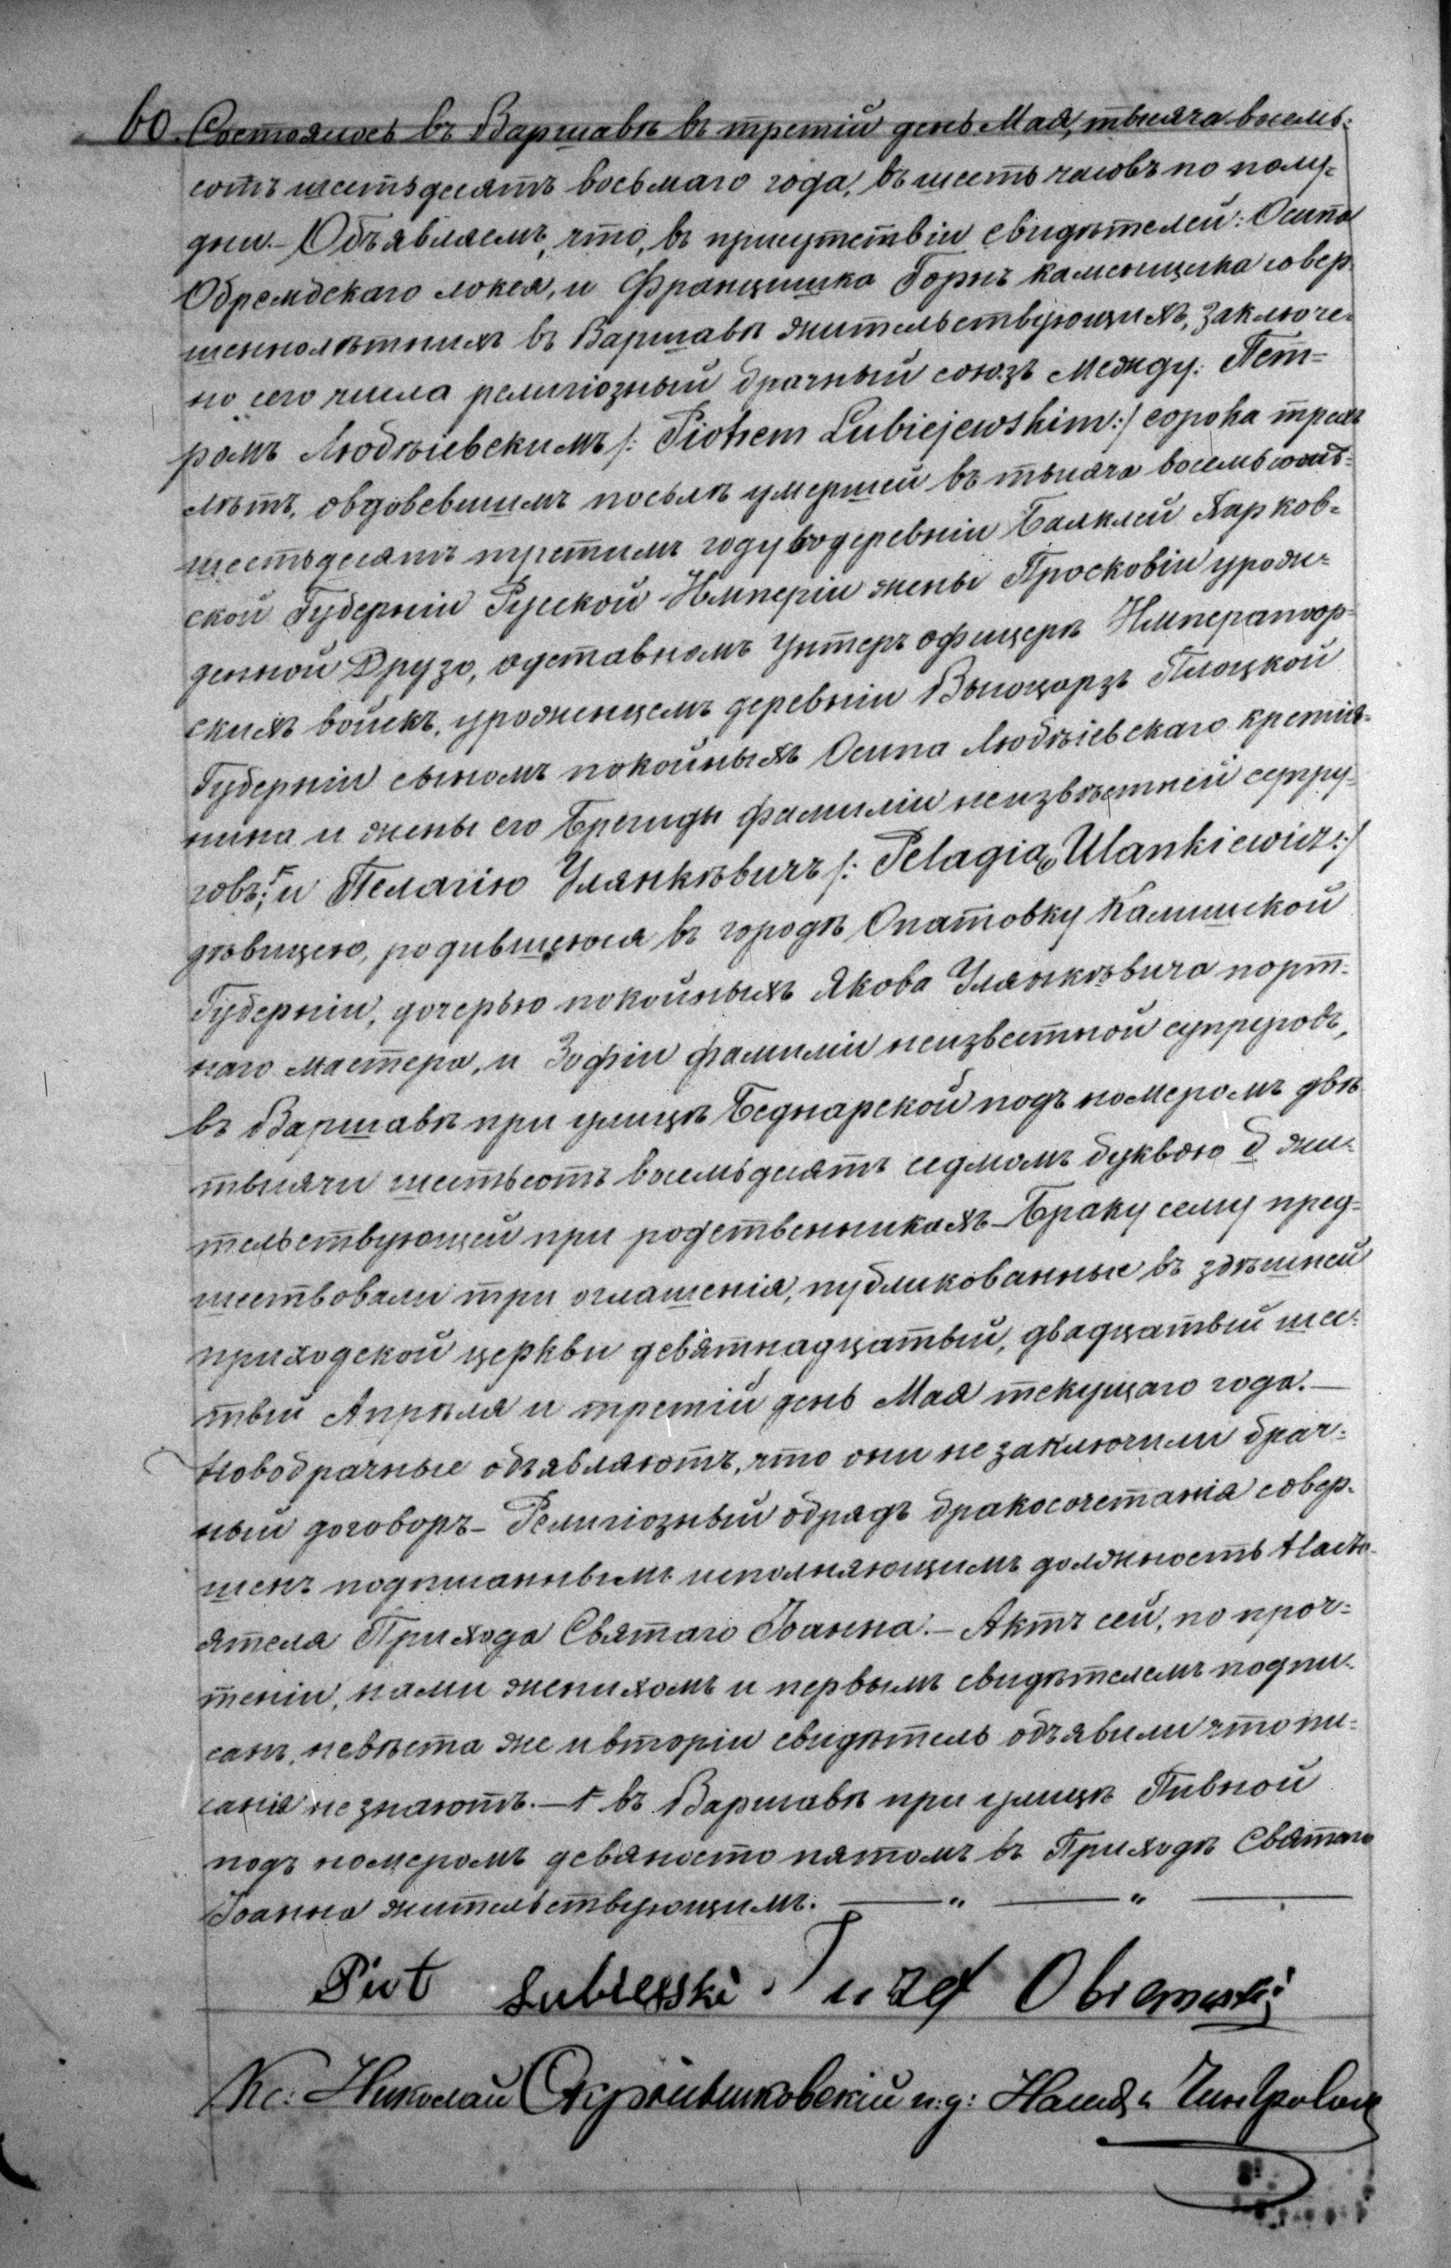 60. Состоялось въ Варшавѣ въ третій день Мая, тысяча восемь=
сотъ шестьдесятъ восьмаго года, въ шесть часовъ по полу=
дни. – Объявляемъ, что, въ присутствіи свидѣтелей: Осипа
Обрембскаго локея, и Францишка Горнъ каменщика совер=
шеннолѣтнихъ въ Варшавѣ жительствующихъ, заключе=
но сего числа религіозный брачный союзъ между: Пет=
ромъ Любѣіевскимъ /: Piotrem Lubiejewskim :/ сорока трехъ
лѣтъ, овдовевшимъ посьлѣ умершей въ тысяча восемьсотъ=
шестьдесятъ третимъ году во деревніи Балклей Харков=
ской Губерніи Русской Имперіи жены Просковіи урожи=
денной Друзо, одставномъ унтеръ офицерѣ Император=
скихъ войскъ, уроженцемъ деревніи Выгоцарзъ Плоцкой
Губерніи сыномъ покойныхъ Осипа Любѣіевскаго крестія=
нина и жены его Брегиды фамиліи неизвѣстней супру=
говъ; и Пелагію Улянкѣвичъ /: Pelagią Ulankiewicz :/
дѣвицею, родившеюся въ городѣ Опатовку Калишской
Губерніи, дочерью покойныхъ Якова Улянкѣвича порт=
наго мастера, и Зофіи фамиліи неизвестной супруговъ,
въ Варшавѣ при улицѣ Беднарской подъ номеромъ двѣ
тысячи шестьсотъ восемьдесятъ седмомъ буквою б жи=
тельствующей при родственникахъ – Браку сему пред=
шествовали три оглашенія, публикованные въ здѣшней
приходской церкви девятнадцатый, двадцатый шес=
тый Апрѣля и третій день Мая текущаго года. —
Новобрачные объявляютъ, что они не заключили брач=
ный договоръ – Религіозный обрядъ бракосочетанія совер=
шенъ подписаннымъ исполняющимъ должность Насто=
ятеля Прихода Святаго Іоанна. – Актъ сей, по проч=
теніи, нами женихомъ и первымъ свидѣтелемъ подпи=
санъ, невѣста же и вторіи свидѣтель объявили что пи=
санія не знаютъ. – Г въ Варшавѣ при улицѣ Пивной
подъ номеромъ девяносто пятомъ въ Приходѣ Святаго
Іоанна жительствующимъ. — „ — „ —
Piot Lubiejski Juzef Obremski
Кс: Николай и: д: Наст.